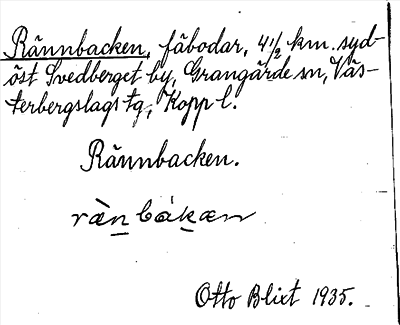 Rännbacken, fäbodar, 4 1/2 km. syd-
öst Svedberget by, Grangärde sn, Väs-
terbergslags tg, Kopp l.
Rännbacken.
ràn̲bákæn
Otto Blixt 1935.